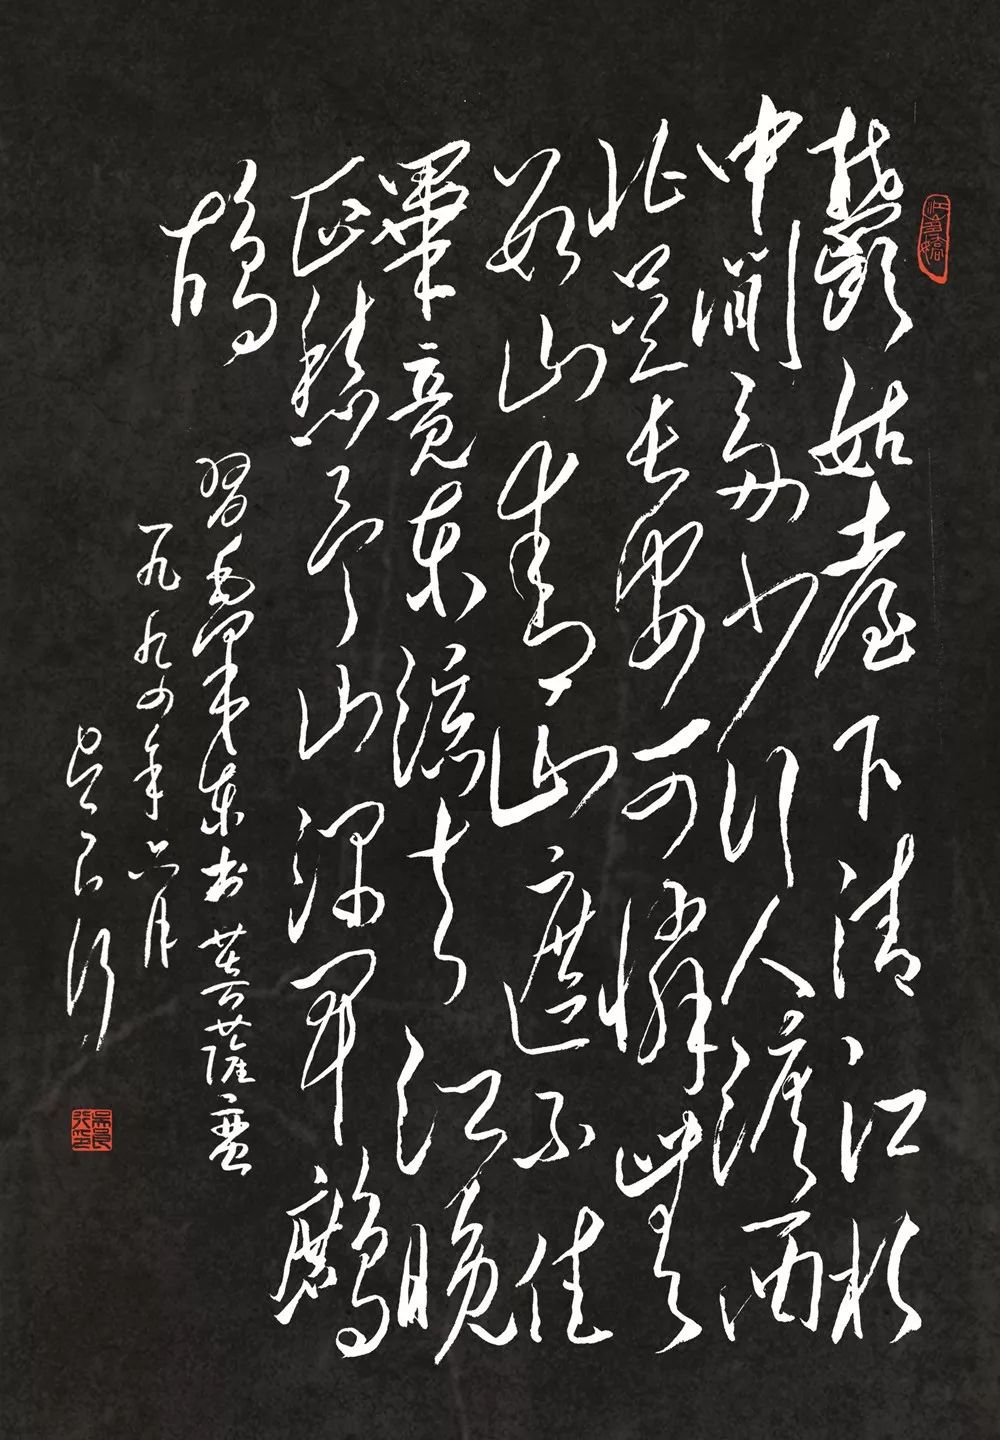 鬱姑臺下清江水
中間多少行人淚西
北是長安可憐無
數山青山遮不住
畢竟東流去江晚
正愁予山深聞鷓
鴣
習毛澤東书菩薩蛮
一九九四年六月
吴良行